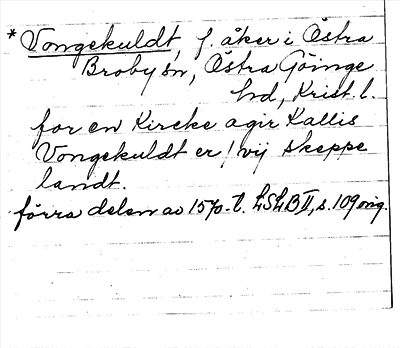 * Vongekuldt, f. åker i Östra
Broby sn, Östra Göinge
hd, Krist. l.
for en Kircke agir Kallis
Vongekuldt er ! vij skeppe
landt.
förra delen av 1570-t. LSLB II, s. 109 orig.